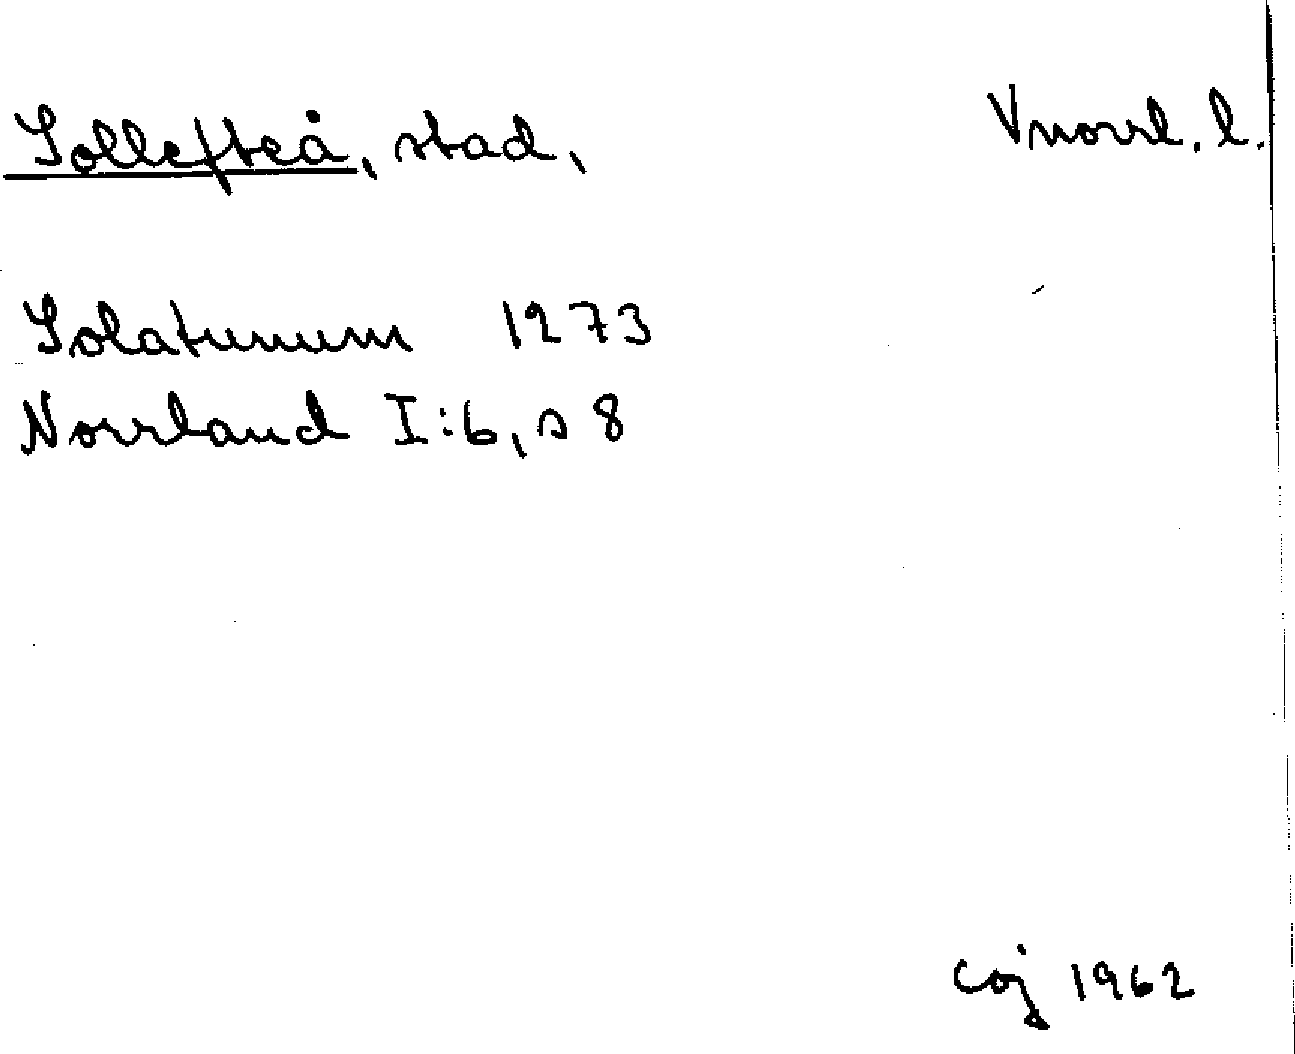 Sollefteå, stad, Vnorrl. l.
Solatunum 1273
Norrland I:6, s 8
Coj 1962